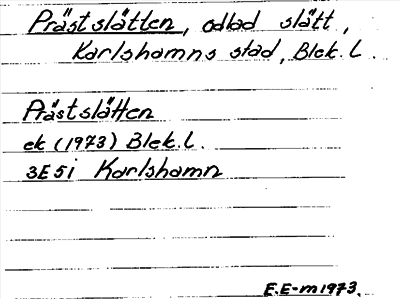 Prästslätten, odlad slätt,
Karlshamns stad, Blek. l.
Prästslätten
ek (1973) Blek. l.
3E 5i Karlshamn
E.E-m 1973.